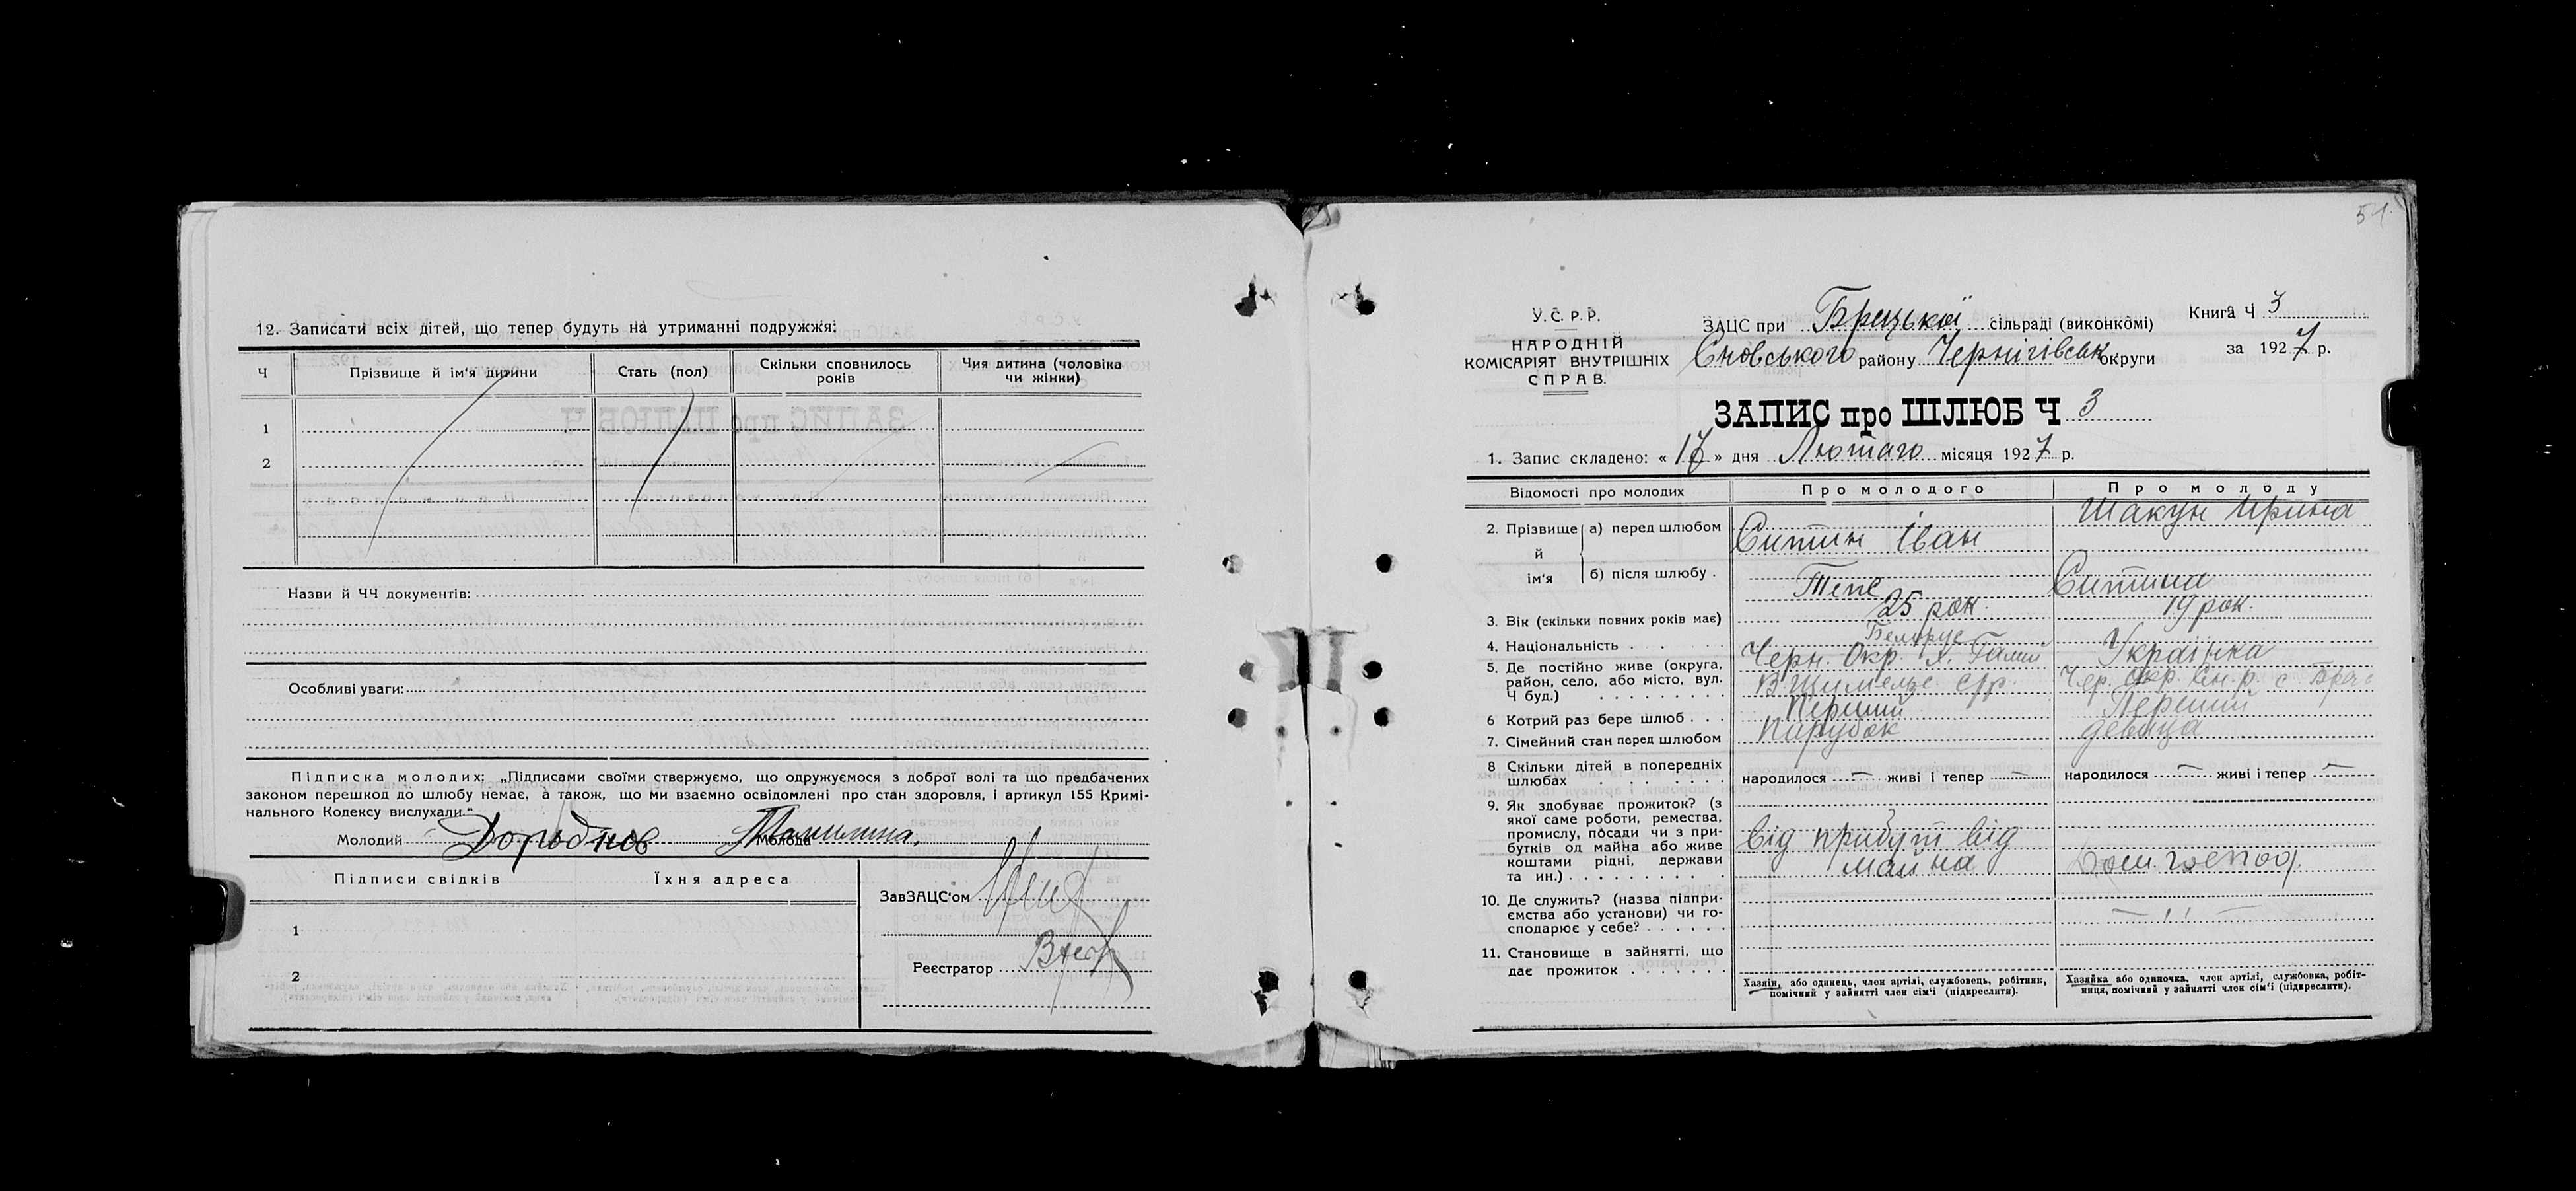 12. Записати всіх дітей, що тепер будуть на утриманні подружжя:
Ч
Прізвище й ім'я дитини
Стать (пол)
Скільки сповнилось років
Чия дитина (чоловіка чи жінки)
1
2
Назви й ЧЧ документів:
Особливі уваги:
Підписка молодих: „Підписами своїми ствержуємо, що одружуємося з доброї волі та що предбачених
законом перешкод до шлюбу немає, а також, що ми взаємно освідомлені про стан здоровля, і артикул 155 Кримі-
нального Кодексу вислухали."
Молодий
Молода
Підписи свідків
Їхня адреса
1
2
ЗавЗАЦС'ом
Реєстратор
51
У.С.Р.Р.
НАРОДНІЙ
КОМІСАРІЯТ ВНУТРІШНІХ
СПРАВ.
ЗАЦС при Брецької сільраді (виконкомі)
Сновського району Чернігівськ. округи
Книга Ч 3
за 1927 р.
ЗАПИС про ШЛЮБ Ч 3
1. Запис складено: « 17 » дня Лютаго місяця 1927 р.
Відомості про молодих
Про молодого
Про молоду
2. Прізвище й ім'я
а) перед шлюбом
Ситин Іван
Шакун Ирина
б) після шлюбу .
Теже
Ситина
3. Вік (скільки повних років має)
25 рок.
19 рок.
4. Національність . . .
Белорус
Українка
5. Де постійно живе (округа,
район, село, або місто, вул.
Ч буд.) . . . . . . . .
Черн. Окр.
с/р.
Чер. Окр. Сн. р. с
6 Котрий раз бере шлюб . . .
Перший
Перший
7. Сімейний стан перед шлюбом
Парубок
девица
8 Скільки дітей в попередніх
шлюбах . . . . . . .
народилося — живі і тепер —
народилося — живі і тепер —
9. Як здобуває прожиток? (з
якої саме роботи, ремества,
промислу, посади чи з при-
бутків од майна або живе
коштами рідні, держави
та ин.) . . . . . . . . .
від прибут від
майна
Дом. господ.
10. Де служить? (назва підпри-
ємства або установи) чи го-
сподарює у себе? . . . . . .
— ,, —
11. Становище в зайнятті, що
дає прожиток . . . . . . .
Хазяїн, або одинець, член артілі, службовець, робітник,
помічний у зайнятті член сім'ї (підкреслити).
Хазяйка або одиночка, член артілі, службовка, робіт-
ниця, помічний у зайнятті член сім'ї (підкреслити).